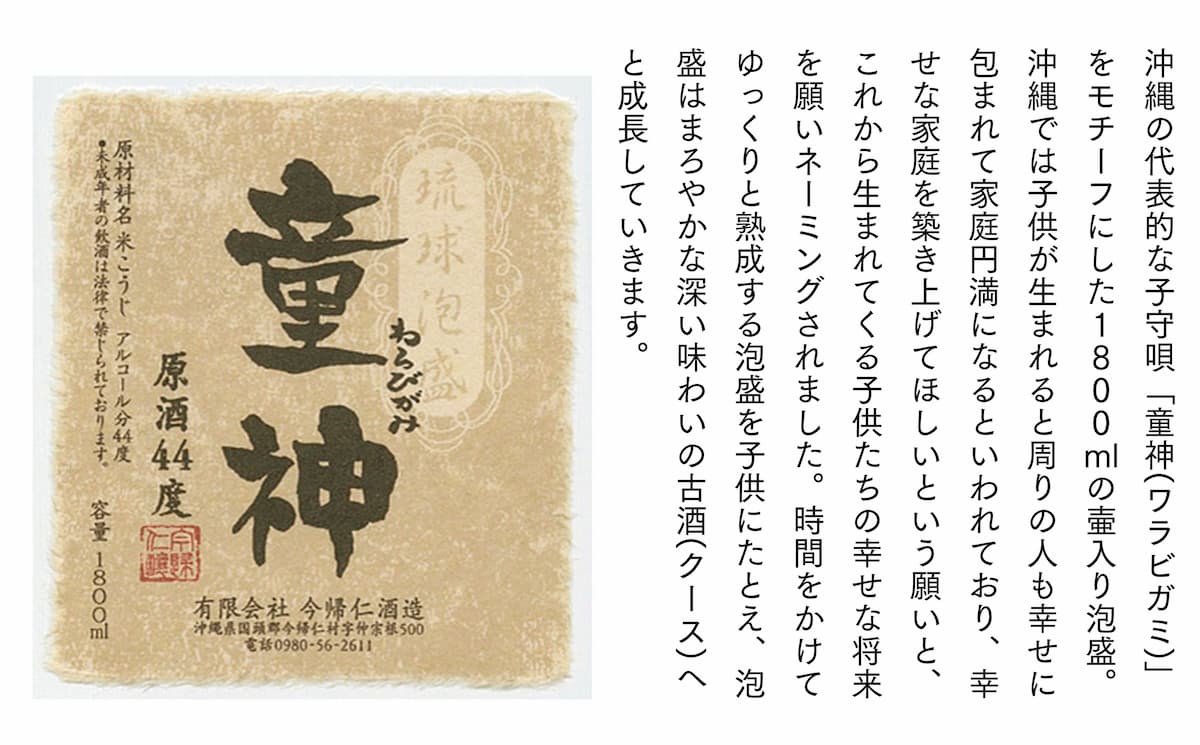 沖縄の代表的な子守唄「童神(ワラビガミ)」
をモチーフにした1800mlの壷入り泡盛。
沖縄では子供が生まれると周りの人も幸せに
包まれて家庭円満になるといわれており、幸
せな家庭を築き上げてほしいという願いと、
これから生まれてくる子供たちの幸せな将来
を願いネーミングされました。時間をかけて
ゆっくりと熟成する泡盛を子供にたとえ、泡
盛はまろやかな深い味わいの古酒(クース)へ
と成長していきます。
琉球泡盛
わらびがみ
童神
原酒44度
今帰仁醸
原材料名 米こうじ アルコール分44度
●未成年者の飲酒は法律で禁じられております。
容量 1800ml
有限会社 今帰仁酒造
沖縄県国頭郡今帰仁村字仲宗根500
電話0980-56-2611